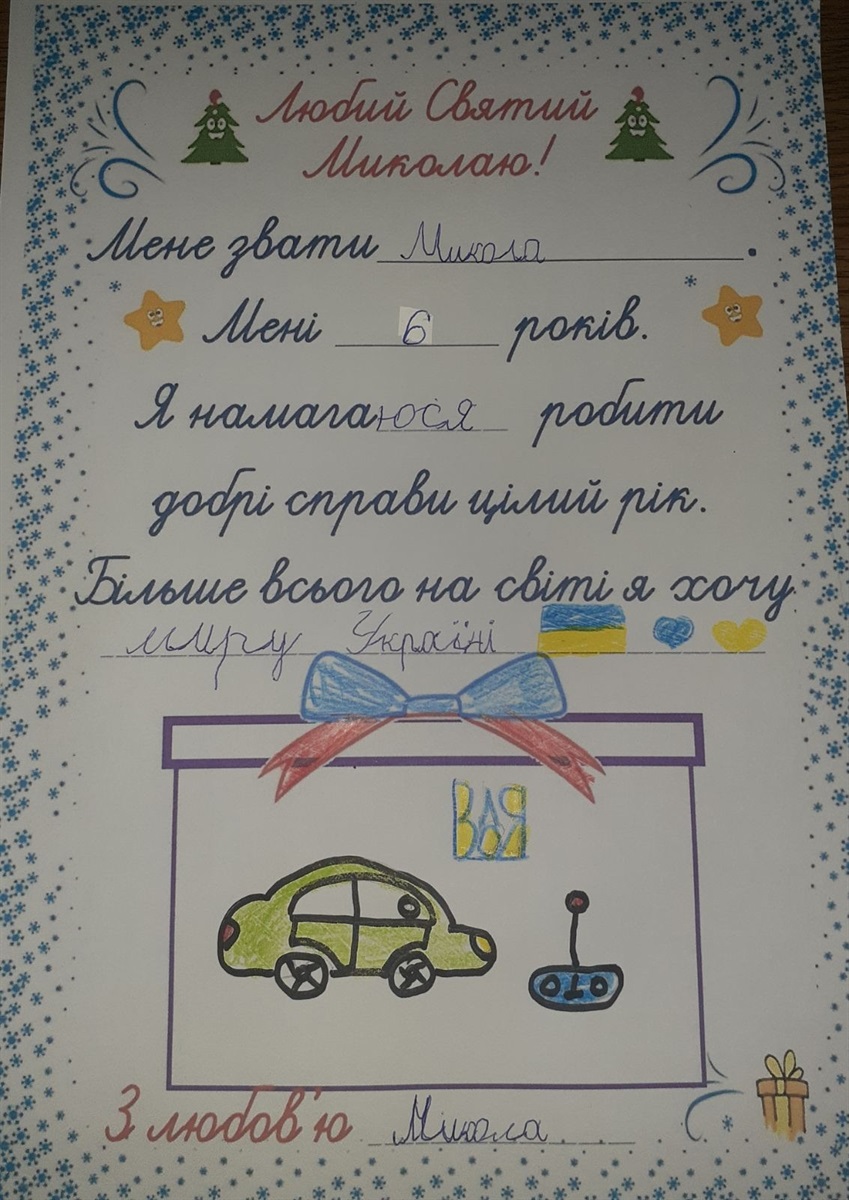 Любий Святий
Миколаю!
Мене звати Микола.
Мені 6 років.
Я намагаюся робити
добрі справи цілий рік.
Більше всього на світі я хочу
миру Україні
З любов'ю Микола